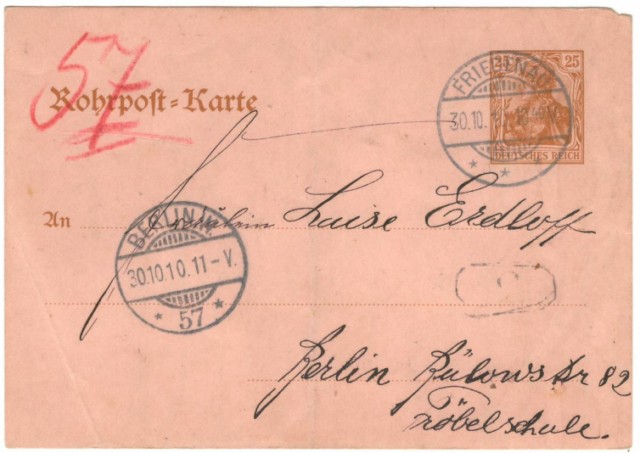 57
25 25
Rohrpost-Karte
FRIEDENAU
30.10.
* *
DEUTSCHES REICH
An Fräulein Luise Erdloff
BERLIN W.
30.10.10.11-V.
* 57 *
Berlin Bülowstr 82
Fröbelschule.